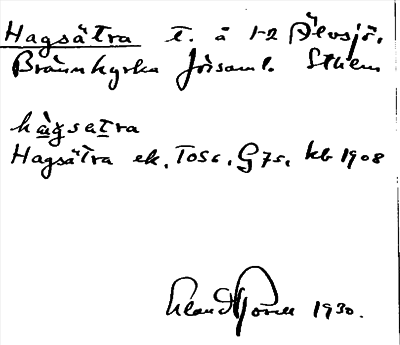 Hagsätra t. å 1-2 Älvsjö.
Brännkyrka församl. Sthlm
hàgsatra
Hagsätra ek. Tosc. G7s. kb 1908
1930.